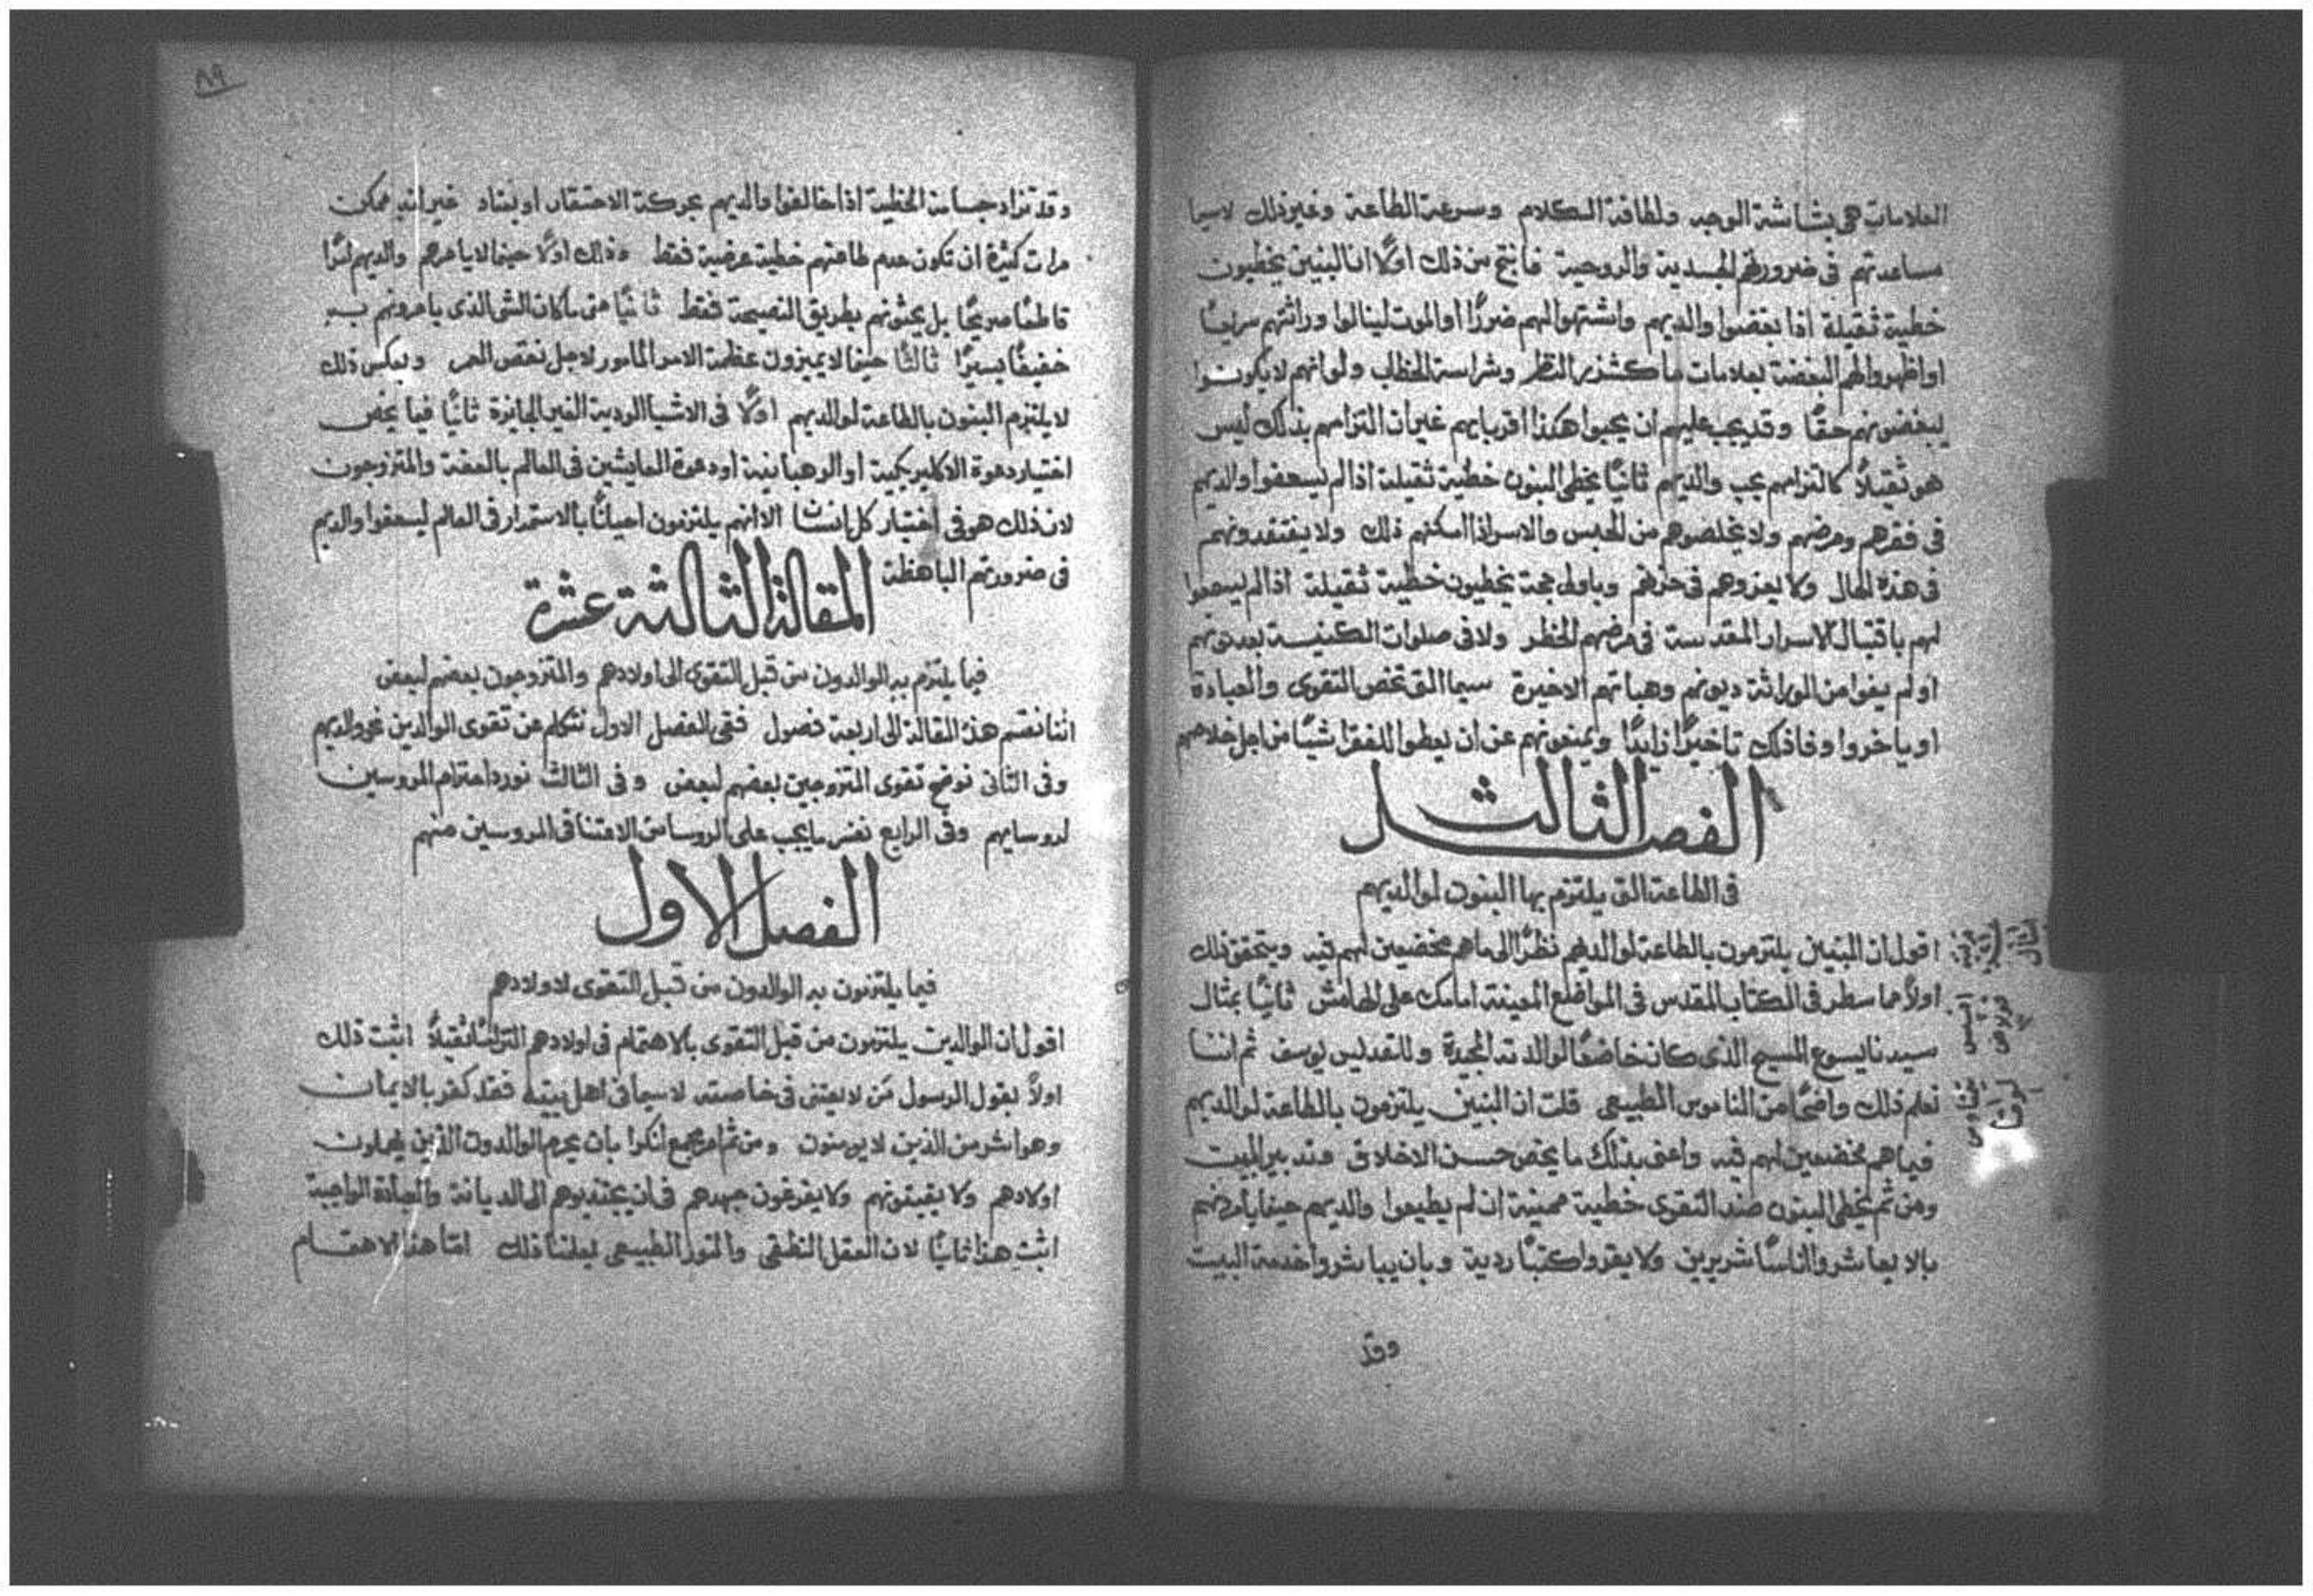 العلامات هي بشاشة الوجه ولطافة الكلام وسرعة الطاعة وغير ذلك لاسيما
مساعدتهم في ضرورتهم الجسدية والروحية فانتج من ذلك اولًا ان البنين يخطيون
خطية ثقيلة اذا بغضوا والديهم واشتهوا لهم ضررًا او الموت لينالوا وراثتهم سريعًا
او اظهروا لهم البغضة بعلامات ما كشذر النظر وشراسة الخطاب ولو انهم لا يكونوا
يبغضونهم حقًا وقد يجب عليهم ان يحبوا هكذا اقربايهم غير ان التزامهم بذلك ليس
هو ثقيلًا كالتزامهم بحب والديهم ثانيًا يخطي البنون خطية ثقيلة اذا لم يسعفوا والديهم
في فقرهم ومرضهم ولا يخلصوهم من الحبس والاسر اذا امكنهم ذلك ولا يفتقدونهم
في هذه الحال ولا يعزوهم في حزنهم وباولى حجة يخطيون خطية ثقيلة اذا لم يسمحوا
لهم باقتبال الاسرار المقدسة في مرضهم الخطر ولا في صلوات الكنيسة بعد موتهم
او لم يوفوا من الوراثة ديونهم وهباتهم الاخيرة سيما التي تخص التقوى والعبادة
او ياخروا وفا ذلك تاخيرًا زايدًا ويمنعونهم عن ان يعطوا للفقرا شيًا من اجل خلاصهم
الفصل الثالث
في الطاعة التي يلتزم بها البنون لوالديهم
اقول ان البنين يلتزمون بالطاعة لوالديهم نظرًا الى ما هم مخضعين لهم فيه ويتحقق ذلك
اولًا مما سطر في الكتاب المقدس في المواضع المعينة امامك على الهامش ثانيًا بمثال
سيدنا يسوع المسيح الذي كان خاضعًا لوالدته المجيدة وللقديس يوسف ثم اننا
نعلم ذلك واضحًا من الناموس الطبيعي قلت ان البنين يلتزمون بالطاعة لوالديهم
فيما هم مخضعين لهم فيه واعني بذلك ما يخص حسن الاخلاق وتدبير البيت
ومن ثم يخطي البنون ضد التقوى خطية مميتة ان لم يطيعوا والديهم حينما يامرونهم
بالا يعاشروا اناسًا شريرين ولا يقروا كتبًا ردية وبان يباشروا خدمة البيت
وقد
٨٩
وقد تزاد جسامة الخطية اذا خالفوا والديهم بحركة الاحتقار او بعناد غير انه ممكن
مرات كثيرة ان تكون عدم طاعتهم خطية عرضية فقط وذلك اولًا حينما لا يامرهم والديهم امرًا
قاطعًا صريحًا بل يحثونهم بطريق النصيحة فقط ثانيًا متى ما كان الشي الذي يامرونهم به
خفيفًا يسيرًا ثالثًا حينما لا يميزون عظمة الامر المامور لاجل نقص العمر وبعكس ذلك
لا يلتزم البنون بالطاعة لوالديهم اولًا في الاشيا الردية الغير الجايزة ثانيًا فيما يخص
اختيار دعوة الاكليريكية او الرهبانية او دعوة العايشين في العالم بالعفة والمتزوجون
لان ذلك هو في اختيار كل انسان الا انهم يلتزمون احيانًا بالاستمرار في العالم ليسعفوا والديهم
في ضرورتهم الباهظة
المقالة الثالثة عشرة
فيما يلتزم به الوالدون من قبل التقوى الى اولادهم والمتزوجون بعضهم لبعض
اننا نقسم هذه المقالة الى اربعة فصول ففي الفصل الاول نتكلم عن تقوى الوالدين نحو والديهم
وفي الثاني نوضح تقوى المتزوجين بعضهم لبعض وفي الثالث نورد احترام المروسين
لروسايهم وفي الرابع نفسر ما يجب على الروسا من الاعتنا في المروسين منهم
الفصل الاول
فيما يلتزمون به الوالدون من قبل التقوى لاولادهم
اقول ان الوالدين يلتزمون من قبل التقوى بالاهتمام في اولادهم التزامًا ثقيلًا اثبت ذلك
اولًا بقول الرسول من لا يعتني في خاصته لاسيما في اهل بيته فقد كفر بالايمان
وهو اشر من الذين لا يومنون ومن ثم امر مجمع انكرا بان يحرم الوالدون الذين يهملون
اولادهم ولا يقيتونهم ولا يفرغون جهدهم في ان يجتذبوهم الى الديانة والعبادة الواجبة
اثبت هذا ثانيًا لان العقل النطقي والنور الطبيعي يعلمنا ذلك امّا هذا الاهتمام